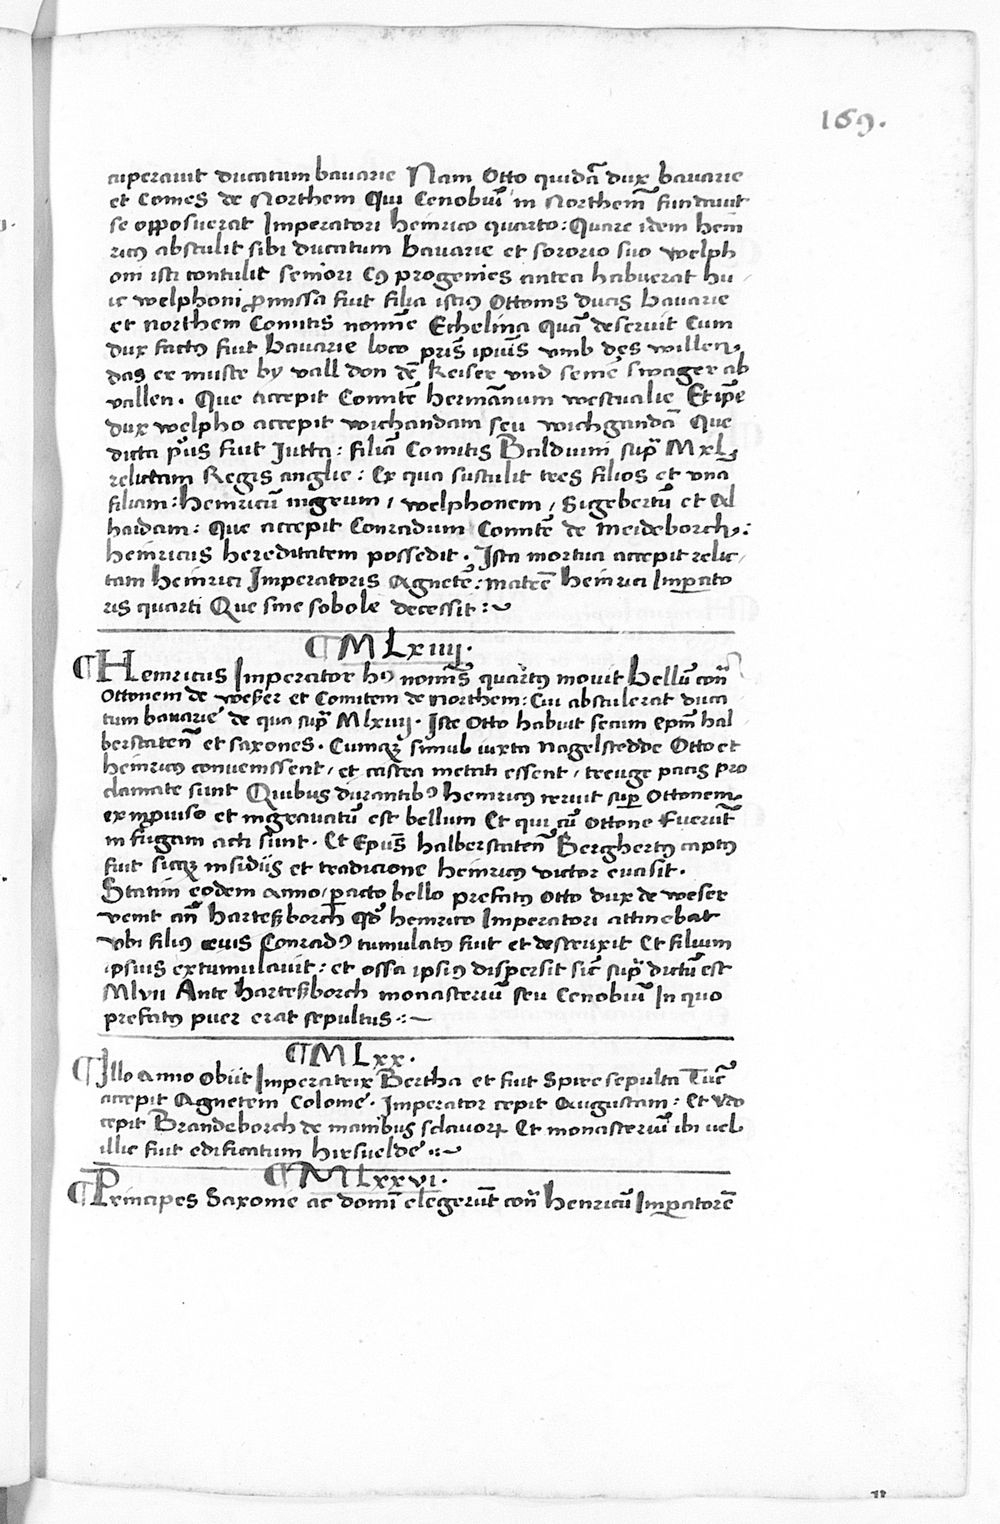 169.
cuperauit ducatum bauarie Nam Otto quidā dux bauarie
et Comes de Northem Qui Cenobiū in Northem̄ fundauit
se opposuerat Imperatori heinrico quarto : Quare idem hein
ricus abstulit sibi ducatum bauarie et sororio suo welph
oni isti contulit seniori Cꝰ progenies antea habuerat hu
ic welphoni ꝓmissa fuit filia istiꝰ Ottonis ducis bauarie
et northem Comitis nomīe Ethelina Quā deseruit Cum
dux factꝰ fuit bauarie loco pr̄is ipiuˢ vmb des willen
das er muste by vall don dē keiser vnd seinē swager ab
vallen . Que accepit Comitē hermānum westualie Et ip̄e
dux welpho accepit wichandam seu wichgandā Que
dicta p̄us fuit Jutta : filia Comitis Balduini sup̄ Mxl
relictam Regis anglie : Ex qua sustulit tres filios et vnā
filiam : heinricū nigrum / welphonem / Sigebertū et Al
haidam : Que accepit Conradum Comitē de meideborch :
heinricus hereditatem possedit . Ista mortua accepit relic
tam heinrici Imperatoris Agnetē : matrē heinrici Imꝑato
ris quarti Que sine sobole decessit :~
¶ M Lxiiij .
¶ Heinricus Imperator hꝰ nominīs quartꝰ mouit bellū cōn̄
Ottonem de weser et Comitem de northem : Cui abstulerat duca
tum bauarie de qua sup̄ Mlxiiij . Iste Otto habuit secum ep̄m hal
berstateñ et saxones . Cumqꝫ simul iuxta nagelstedde Otto et
heinricꝰ conuenissent / et castra metati essent / treuge pacis pro
clamate sunt Quibus durantibꝰ heinricꝰ irruit suꝑ Ottonem
ex inprouiso et ingrauatū est bellum Et qui cū Ottone fuerūt
in fugam acti sunt . Et Epūs halberstateñ Berghertꝰ captꝰ
fuit sicqꝫ insidijs et tradicione heinricꝰ victor euasit .
Statim eodem anno / ꝑacto bello prefatꝰ Otto dux de weser
venit an̄ hartesborch qd̄ heinrico Imperatori attinebat
vbi filiꝰ eius Conradꝰ tumulatꝰ fuit et destruxit Et filium
ipsius extumulauit : et ossa ipsiꝰ dispersit sic̄ sup̄ dictū est
Mlvii Ante hartesborch monasteriū seu Cenobiū In quo
prefatꝰ puer erat sepultus :~
¶ M Lxx .
¶ Illo anno obiit Imperatrix Bertha et fuit Spire sepulta Tūc
accepit Agnetem Colonie . Imperator cepit Augustam : Et vdo
cepit Brandeborch de manibus sclauorꝝ Et monasteriū ibi uel
illic fuit edificatum hirsuelde :~
¶ M Lxxvi .
¶ Principes Saxonie ac domī elegerūt cōn̄ henricū Imꝑatorē